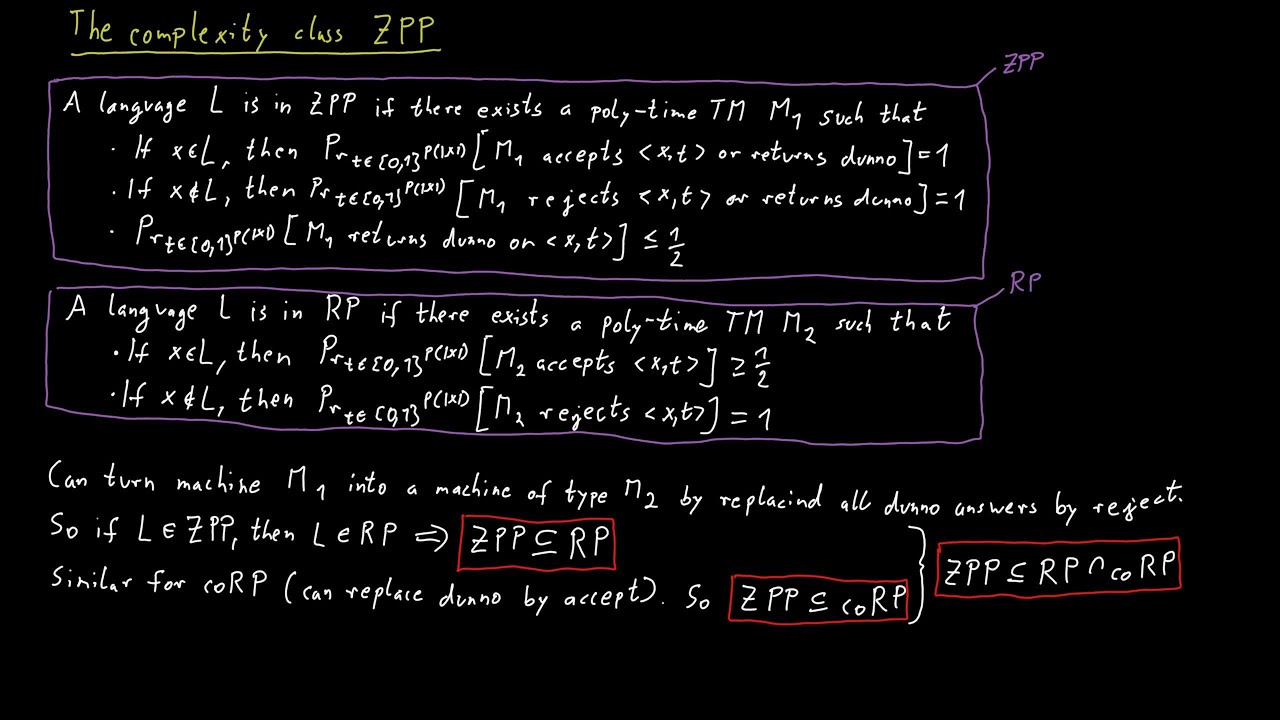 The complexity class ZPP
ZPP
A language L is in ZPP if there exists a poly-time TM M₁ such that
· If x∈L, then Pr_{t∈{0,1}^{p(|x|)}} [M₁ accepts <x,t> or returns dunno] = 1
· If x∉L, then Pr_{t∈{0,1}^{p(|x|)}} [M₁ rejects <x,t> or returns dunno] = 1
· Pr_{t∈{0,1}^{p(|x|)}} [M₁ returns dunno on <x,t>] ≤ 1/2
RP
A language L is in RP if there exists a poly-time TM M₂ such that
· If x∈L, then Pr_{t∈{0,1}^{p(|x|)}} [M₂ accepts <x,t>] ≥ 1/2
· If x∉L, then Pr_{t∈{0,1}^{p(|x|)}} [M₂ rejects <x,t>] = 1
Can turn machine M₁ into a machine of type M₂ by replacind all dunno answers by reject.
So if L∈ZPP, then L∈RP ⇒ ZPP ⊆ RP
Similar for coRP (can replace dunno by accept). So ZPP ⊆ coRP
} ZPP ⊆ RP ∩ coRP